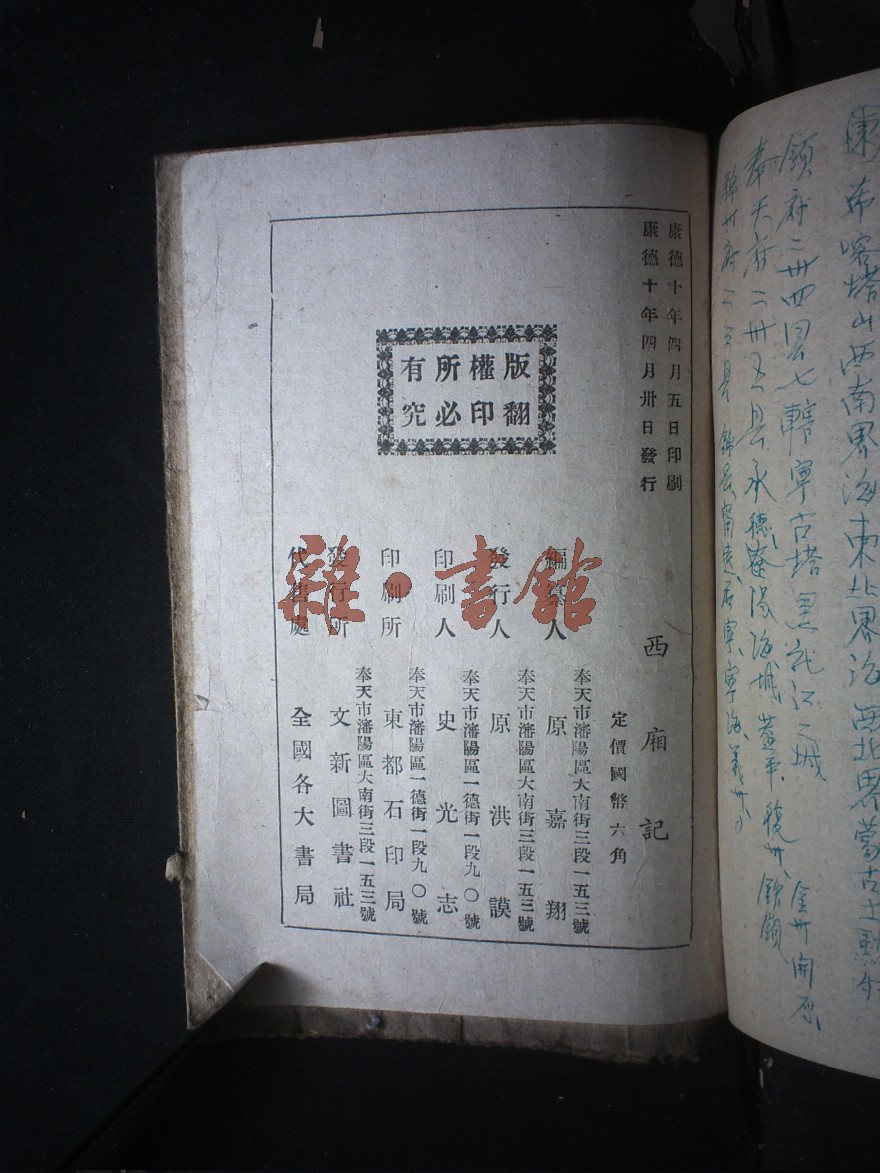 康德十年四月五日印刷
康德十年四月卅日發行
版權所有
翻印必究
西廂記
定價國幣六角
奉天市瀋陽區大南街三段一五三號
編纂人 原嘉翔
奉天市瀋陽區大南街三段一五三號
發行人 原洪謨
奉天市瀋陽區一德街一段九〇號
印刷人 史光志
奉天市瀋陽區一德街一段九〇號
印刷所 東都石印局
奉天市瀋陽區大南街三段一五三號
發行所 文新圖書社
代售處 全國各大書局
雜·書館
塔山西南界海東北界海西北界蒙古土
領府二卅四縣七轄寧古塔黑龍江之城
奉天府二卅五县承德遼陽海城蓋平復卅鉄領
金卅開原
錦卅府二